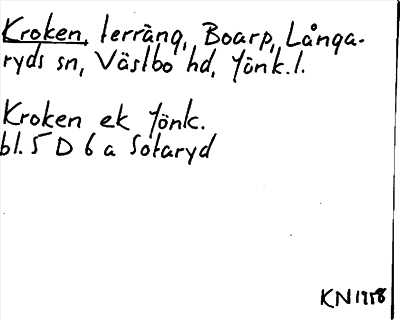 Kroken, terräng, Boarp, Långa-
ryds sn, Västbo hd, Jönk. l.
Kroken ek Jönk.
bl. 5 D 6 a Sotaryd
KN 1958